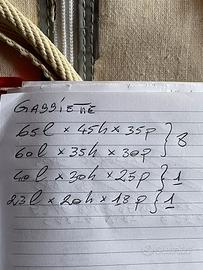 GABBIETTE
65l x 45h x 35p } 8
60l x 35h x 30p
40l x 30h x 25p } 1
23l x 20h x 18p } 1